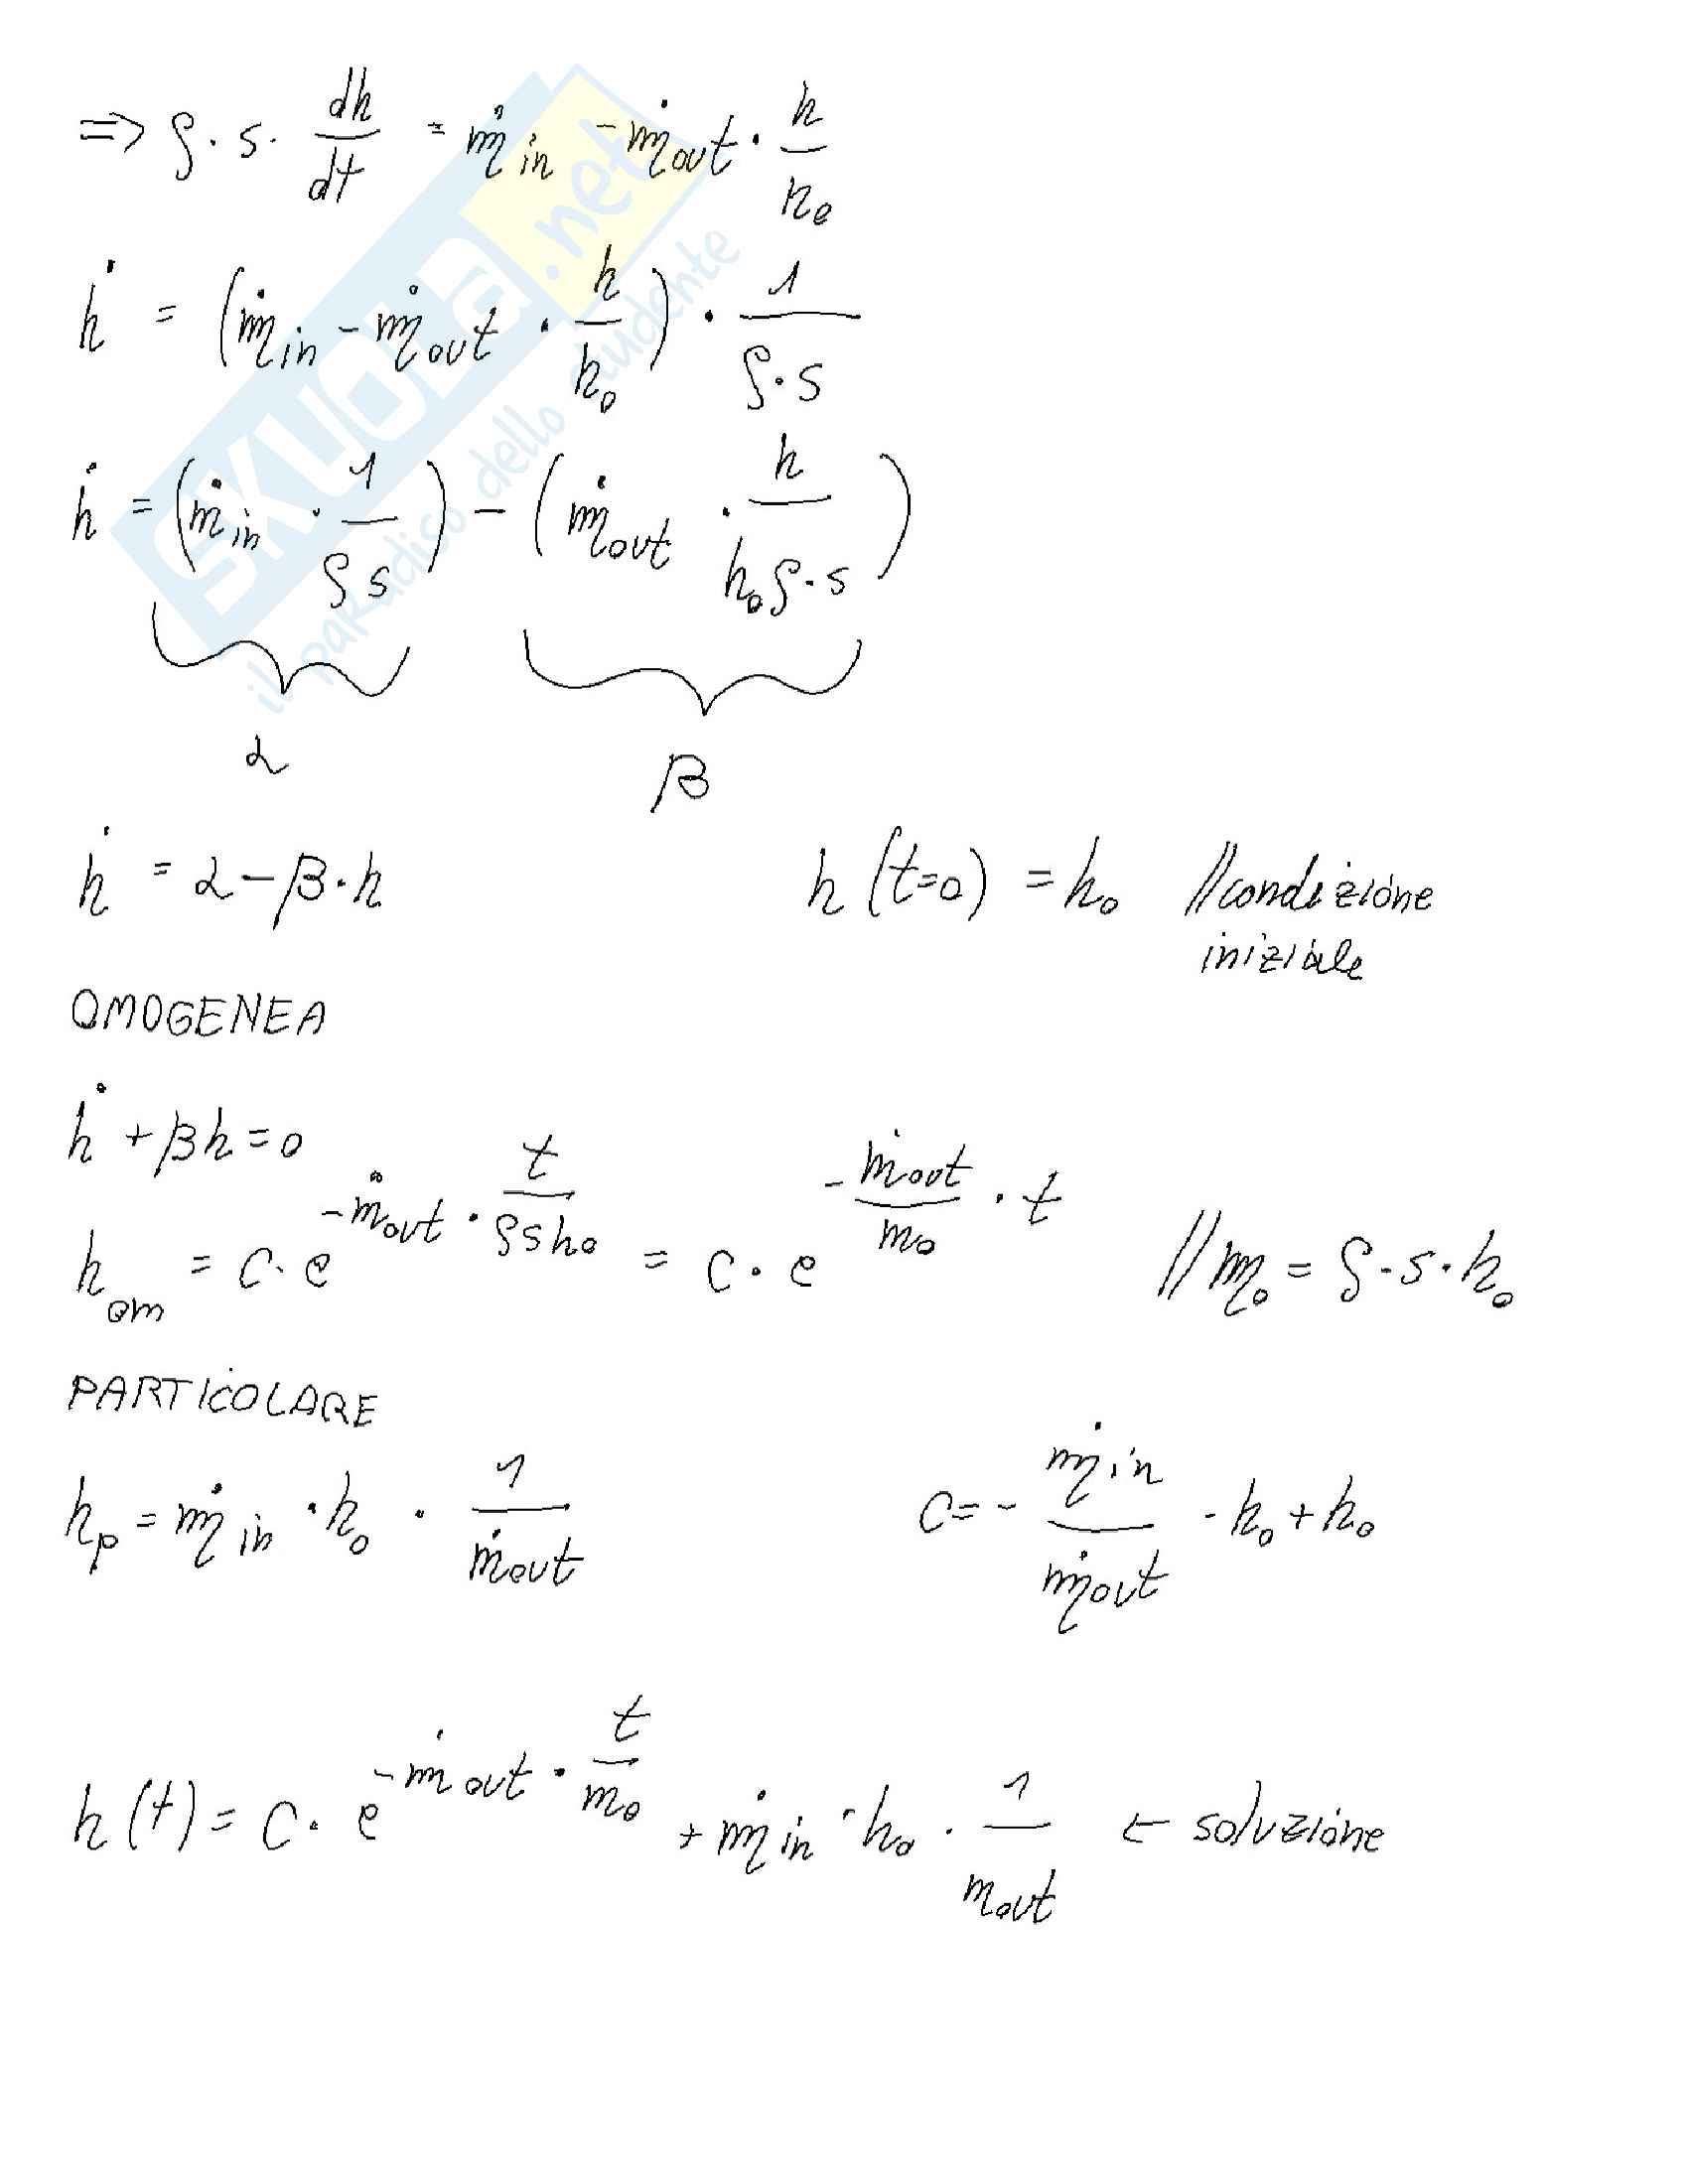 => ρ · s · dh/dt = ṁin - ṁout · h/h₀
ḣ = (ṁin - ṁout · h/h₀) · 1/ρ·s
ḣ = (ṁin · 1/ρs) - (ṁout · h/h₀ρ·s)
α β
ḣ = α - β·h h(t=0) = h₀ //condizione
iniziale
OMOGENEA
ḣ + βh = 0
hom = C · e^(-ṁout · t/ρsh₀) = C · e^(-ṁout/m₀ · t) //m₀ = ρ·s·h₀
PARTICOLARE
hp = ṁin · h₀ · 1/ṁout C = - ṁin/ṁout · h₀ + h₀
h(t) = C · e^(-ṁout · t/m₀) + ṁin · h₀ · 1/mout ← soluzione
SKUOLA.net
il paradiso dello studente